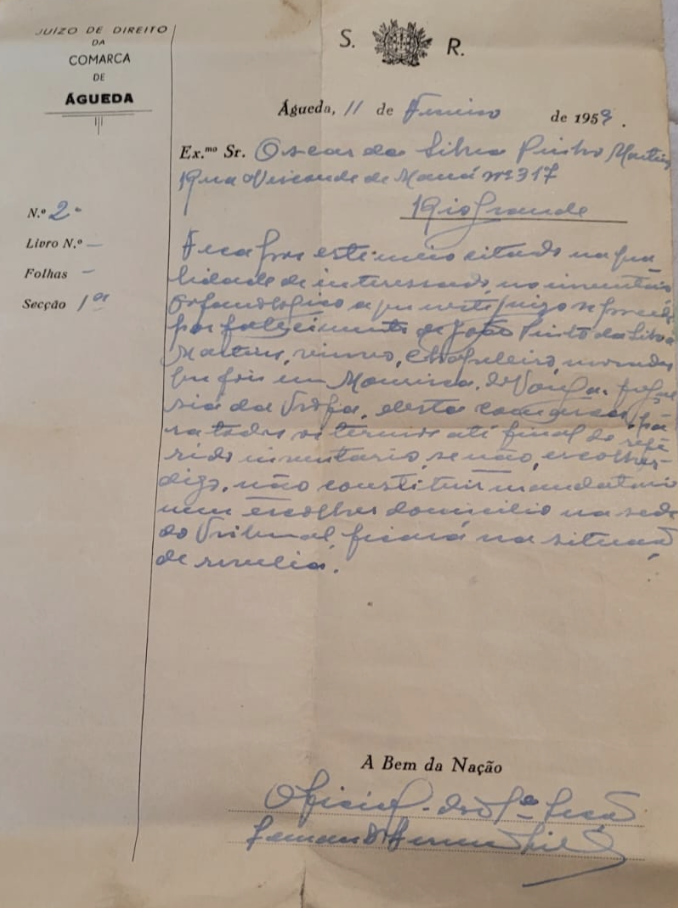 JUIZO DE DIREITO
DA
COMARCA
DE
ÁGUEDA
S. R.
Águeda, 11 de de 1959.
Ex.mo Sr. Oscar da Silva Pinho Martins
Rua Visconde de Mauá nº 317
Rio Grande
N.º 2
Livro N.º —
Folhas —
Secção 1ª
Fica por este meio citado na qua
lidade de interessado, no inventário
orfanológico a que neste juizo se procede
por falecimento de João Pinto da Silva
Martins, viuvo, morador
que foi em Mourisca do Vouga, fregue
sia da Trofa, desta comarca, pa
ra todos os termos até final do refe
rido inventario, se não, escolher
digo, não constituir mandatario
nem escolher domicilio na sede
do Tribunal ficará na situação
de revelia.
A Bem da Nação
O Oficial da 1ª Secção